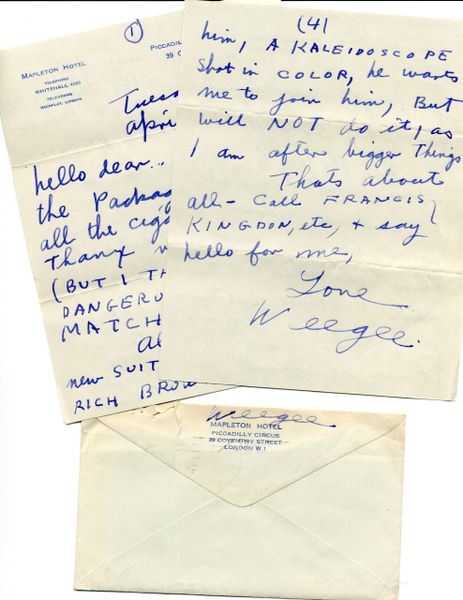 (1)
MAPLETON HOTEL
TELEPHONE
WHITEHALL
TELEGRAMS
LONDON
PICCADILLY
39 CO
Tuesd
Apri
hello dear..
the Packag
all the cig
thanx
(BUT I TH
DANGERO
MATCH
Al
new SUIT
RICH BROW
(4)
him, A KALEIDOSCOPE
Shot in COLOR, he wants
me to join him, But
will NOT do it, as
I am after bigger Things
Thats about
all - Call FRANCIS
KINGDON, etc, + say
hello for me,
Love
Weegee.
Weegee
MAPLETON HOTEL
PICCADILLY CIRCUS
39 COVENTRY STREET
LONDON W.1